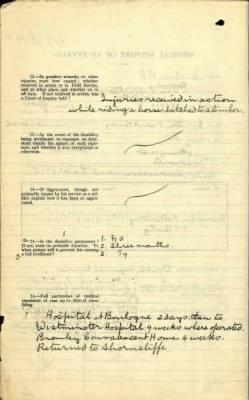 12.—In gunshot wounds, or other
injuries, state how caused; whether
received in action or in Field Service,
and at what place, and whether on or
off duty. If not received in action, was
a Court of Inquiry held?
Injuries received in action
while riding a horse hitched to a limber.
13.—In the event of the disability
being attributed to exposure on duty,
state clearly the nature of such exposure,
and whether it was exceptional or
otherwise.
14.—If aggravated, though not
primarily caused by his service as a soldier,
explain how it has been so aggravated.
15.—Is the disability permanent?
If not, state its probable duration. To
what extent will it prevent his earning
a full livelihood?
1. No
2. three months
3. 1/4
16.—Full particulars of medical
treatment of case up to date of invaliding.
Hospital at Boulogne 2 days. then to
Westminster Hospital 9 weeks where operated.
Bromley Convalescent Home 4 weeks.
Returned to Shorncliffe